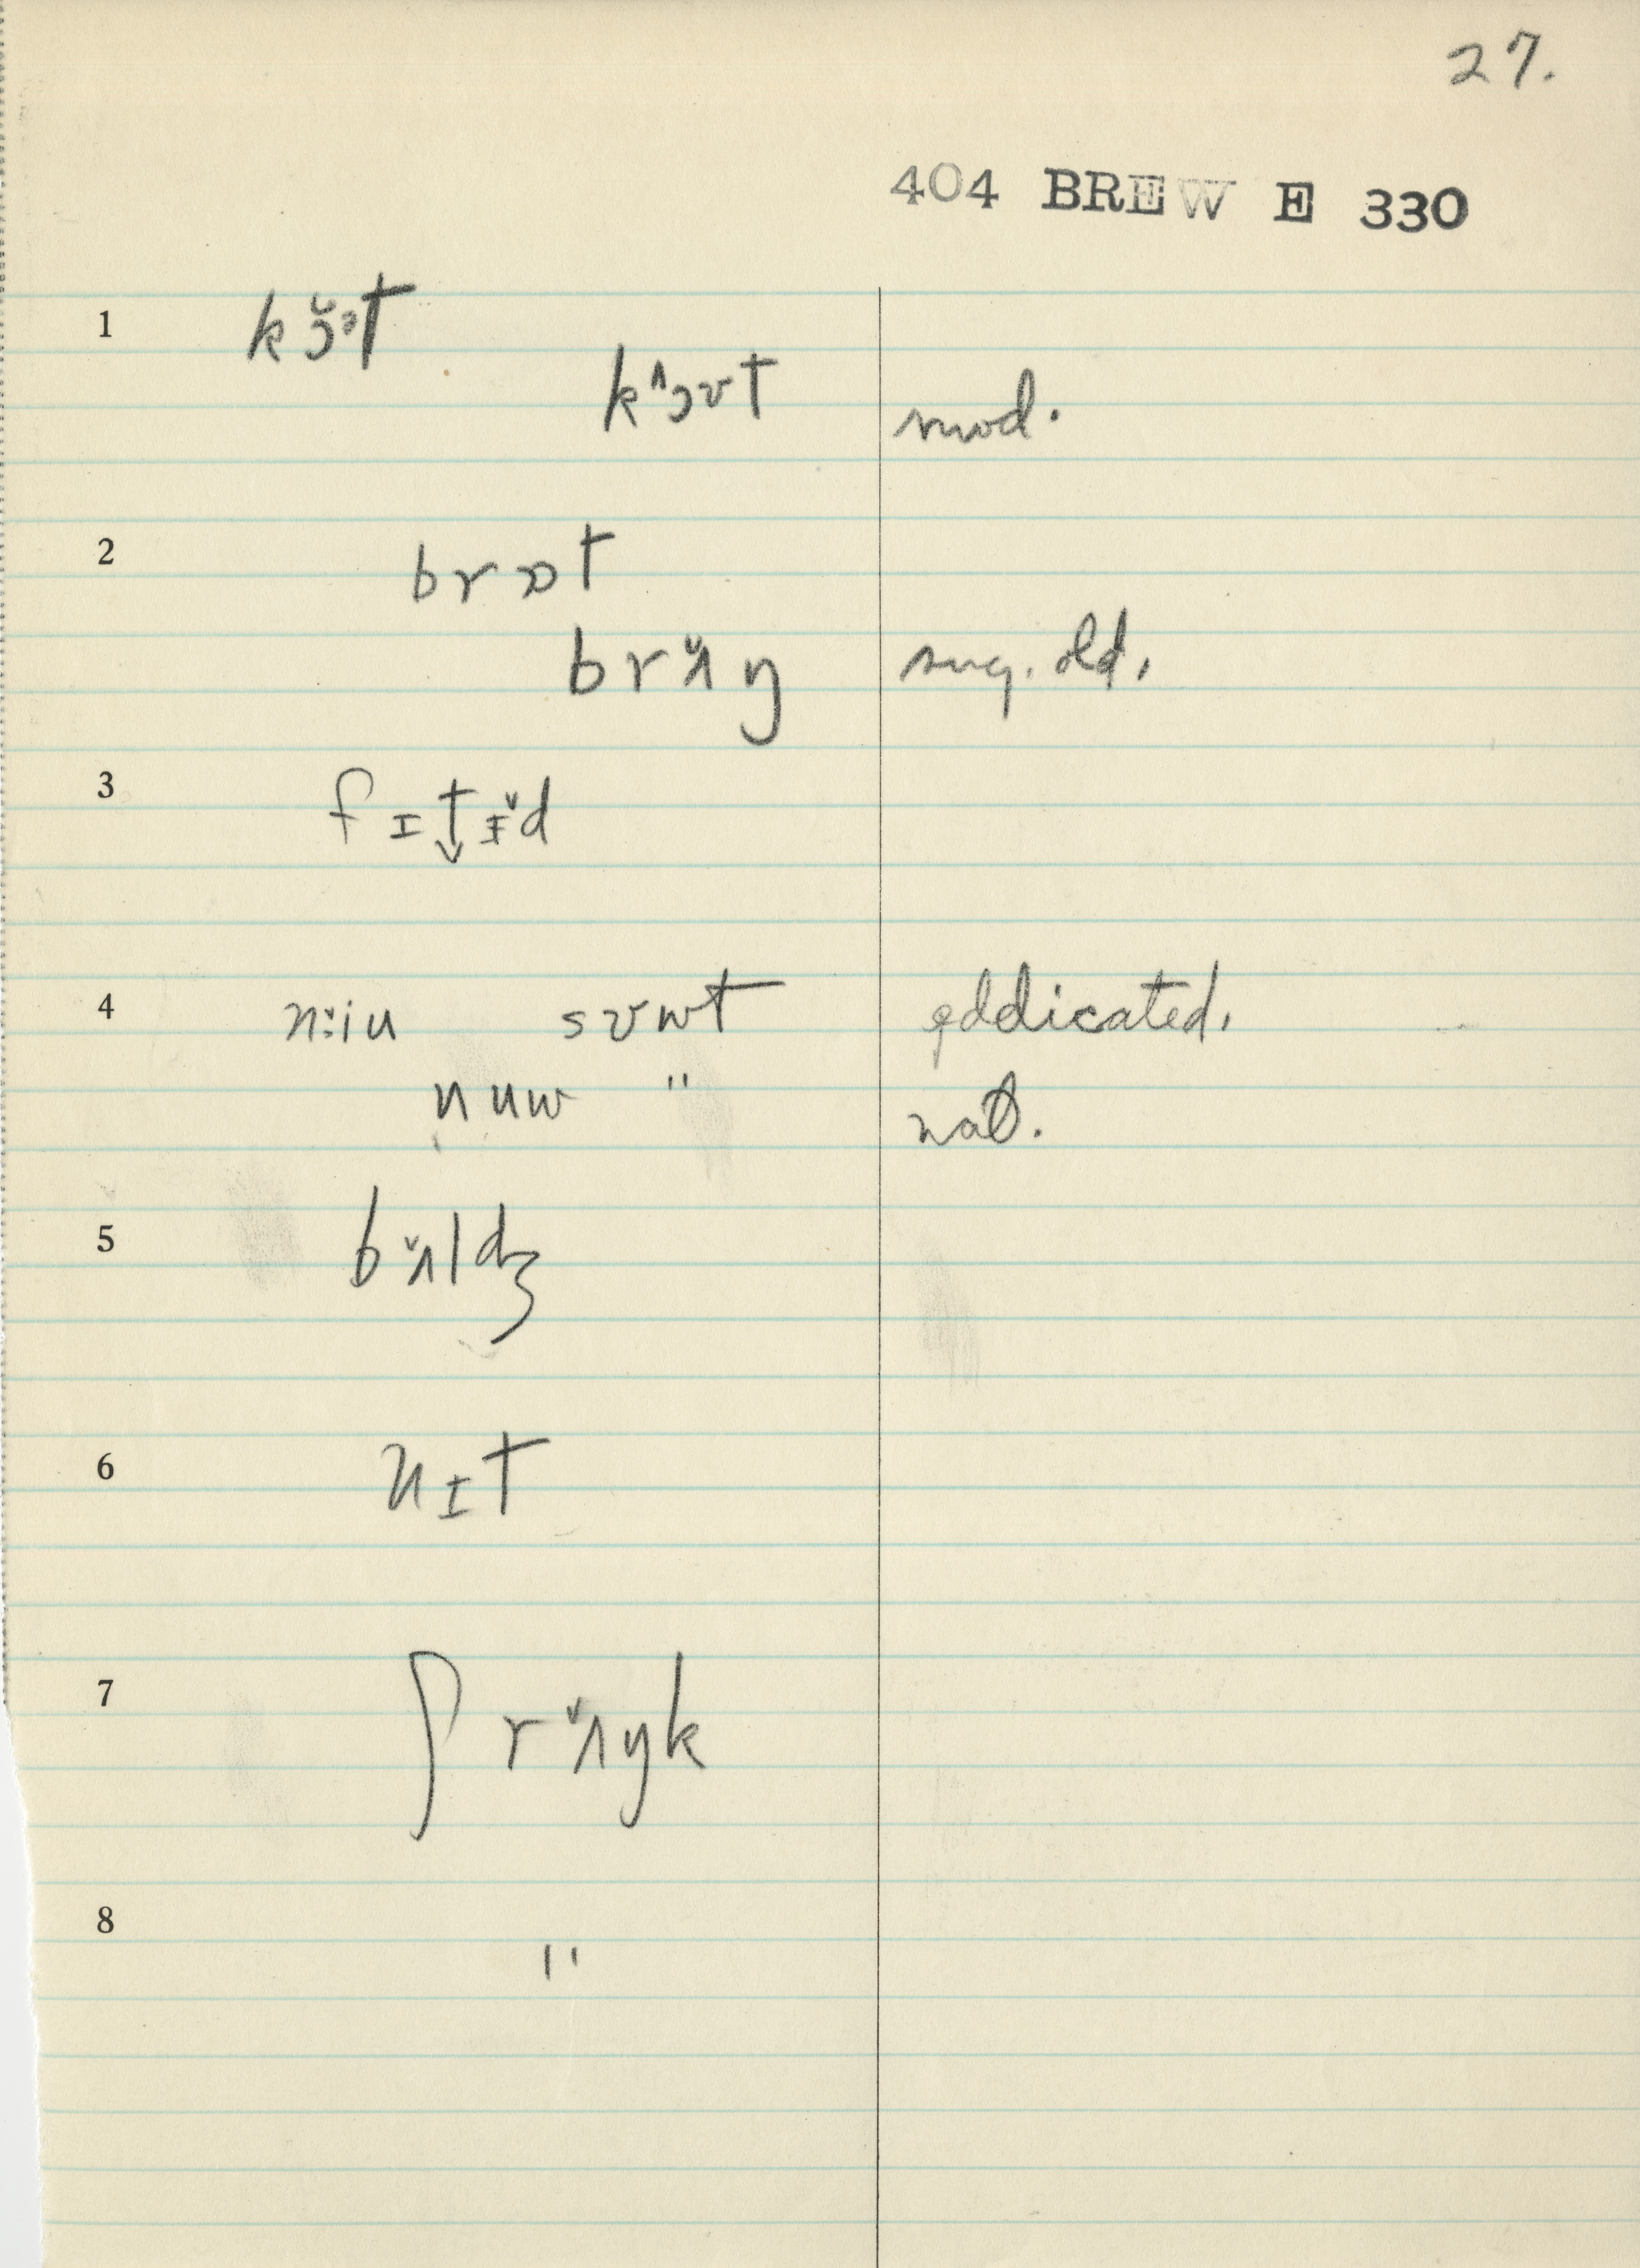 27.
404 BREW E 330
1 kɔ̆ᵊt
kʌɔʊt mod.
2 brɒt
brʌ̆ŋ sug. old.
3 fɪt↓ɨ̆d
4 n:iu sʊwt eddicated.
nuw " nat.
5 bʌ̆ldʒ
6 nɪt
7 ʃrʌ̆ŋk
8 "